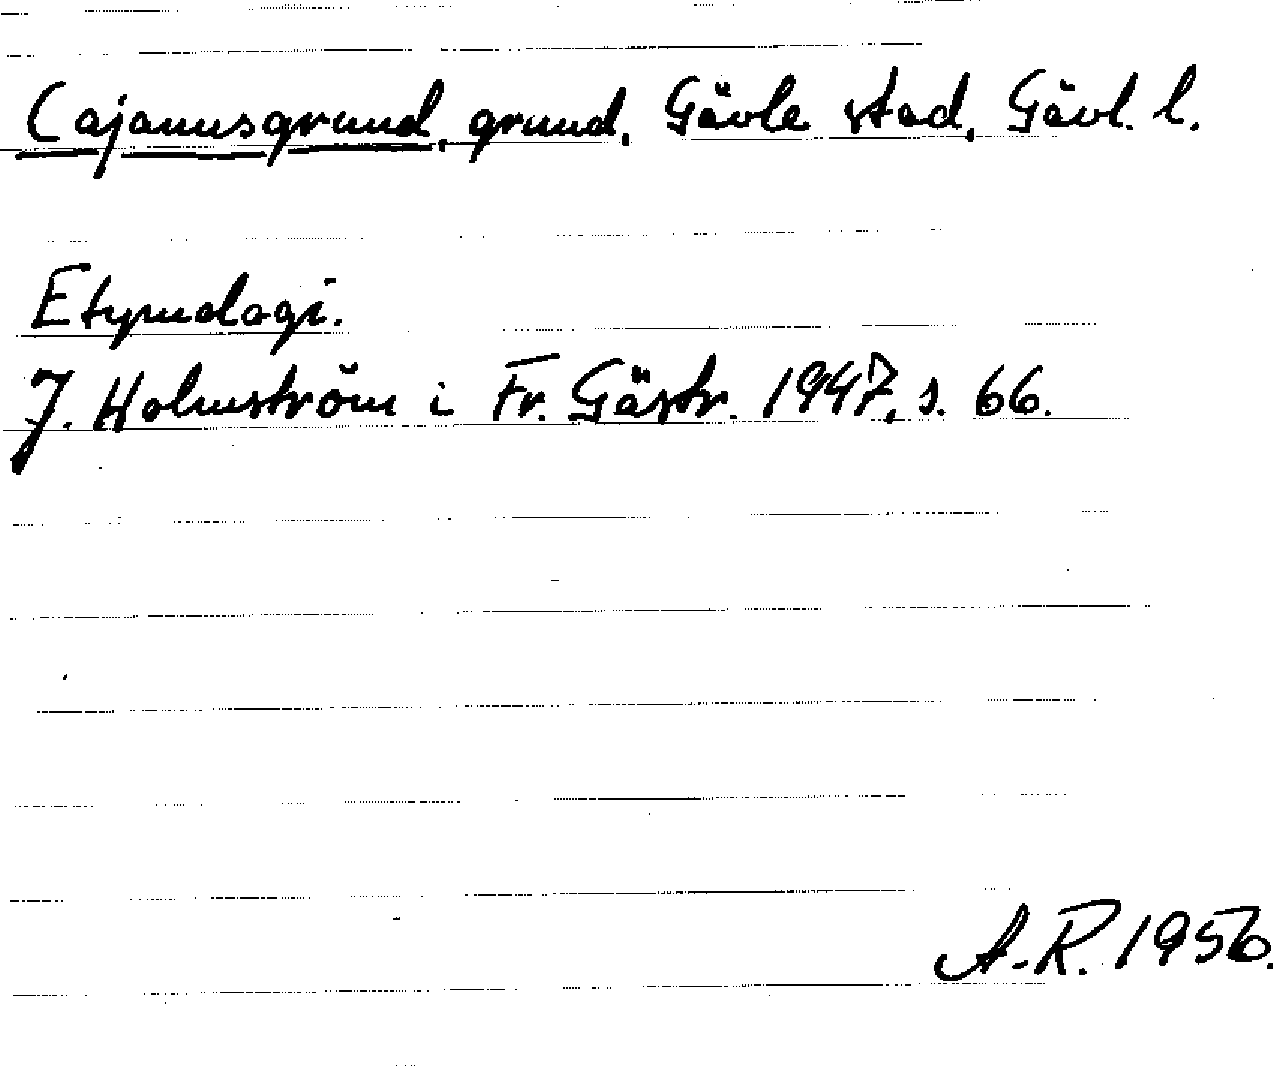 Cajanusgrund, grund, Gävle stad, Gävl. l.
Etymologi.
J. Holmström i Fr. Gästr. 1947, s. 66.
A.R. 1956.